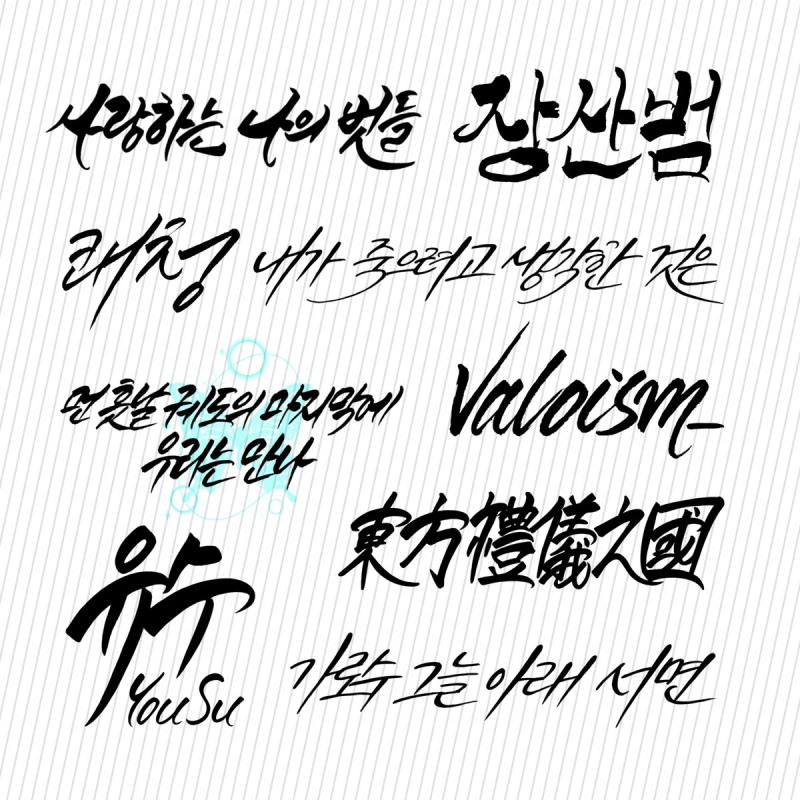 사랑하는 나의 벗들
장산범
쾌청
내가 죽으려고 생각한 것은
먼 훗날 궤도의 마지막에
우리는 만나
Valoism_
東方禮儀之國
유수
YouSu
가로수 그늘 아래 서면